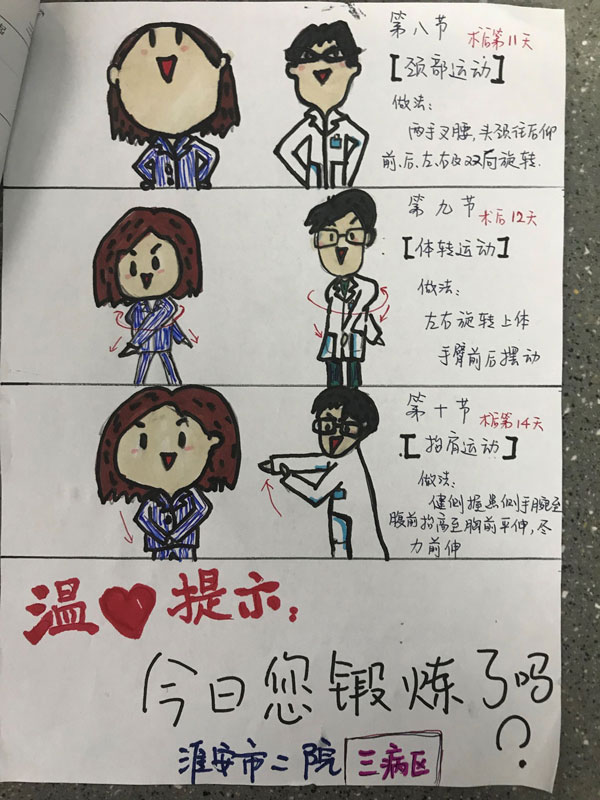 第八节
术后第11天
[颈部运动]
做法:
两手叉腰,头颈往后仰
前、后、左、右及双向旋转.
第九节
术后12天
[体转运动]
做法:
左右旋转上体
手臂前后摆动
第十节
术后第14天
[抬肩运动]
做法:
健侧握患侧手腕至
腹前抬高至胸前平伸,尽
力前伸
温❤提示:
今日您锻炼了吗?
淮安市二院 三病区